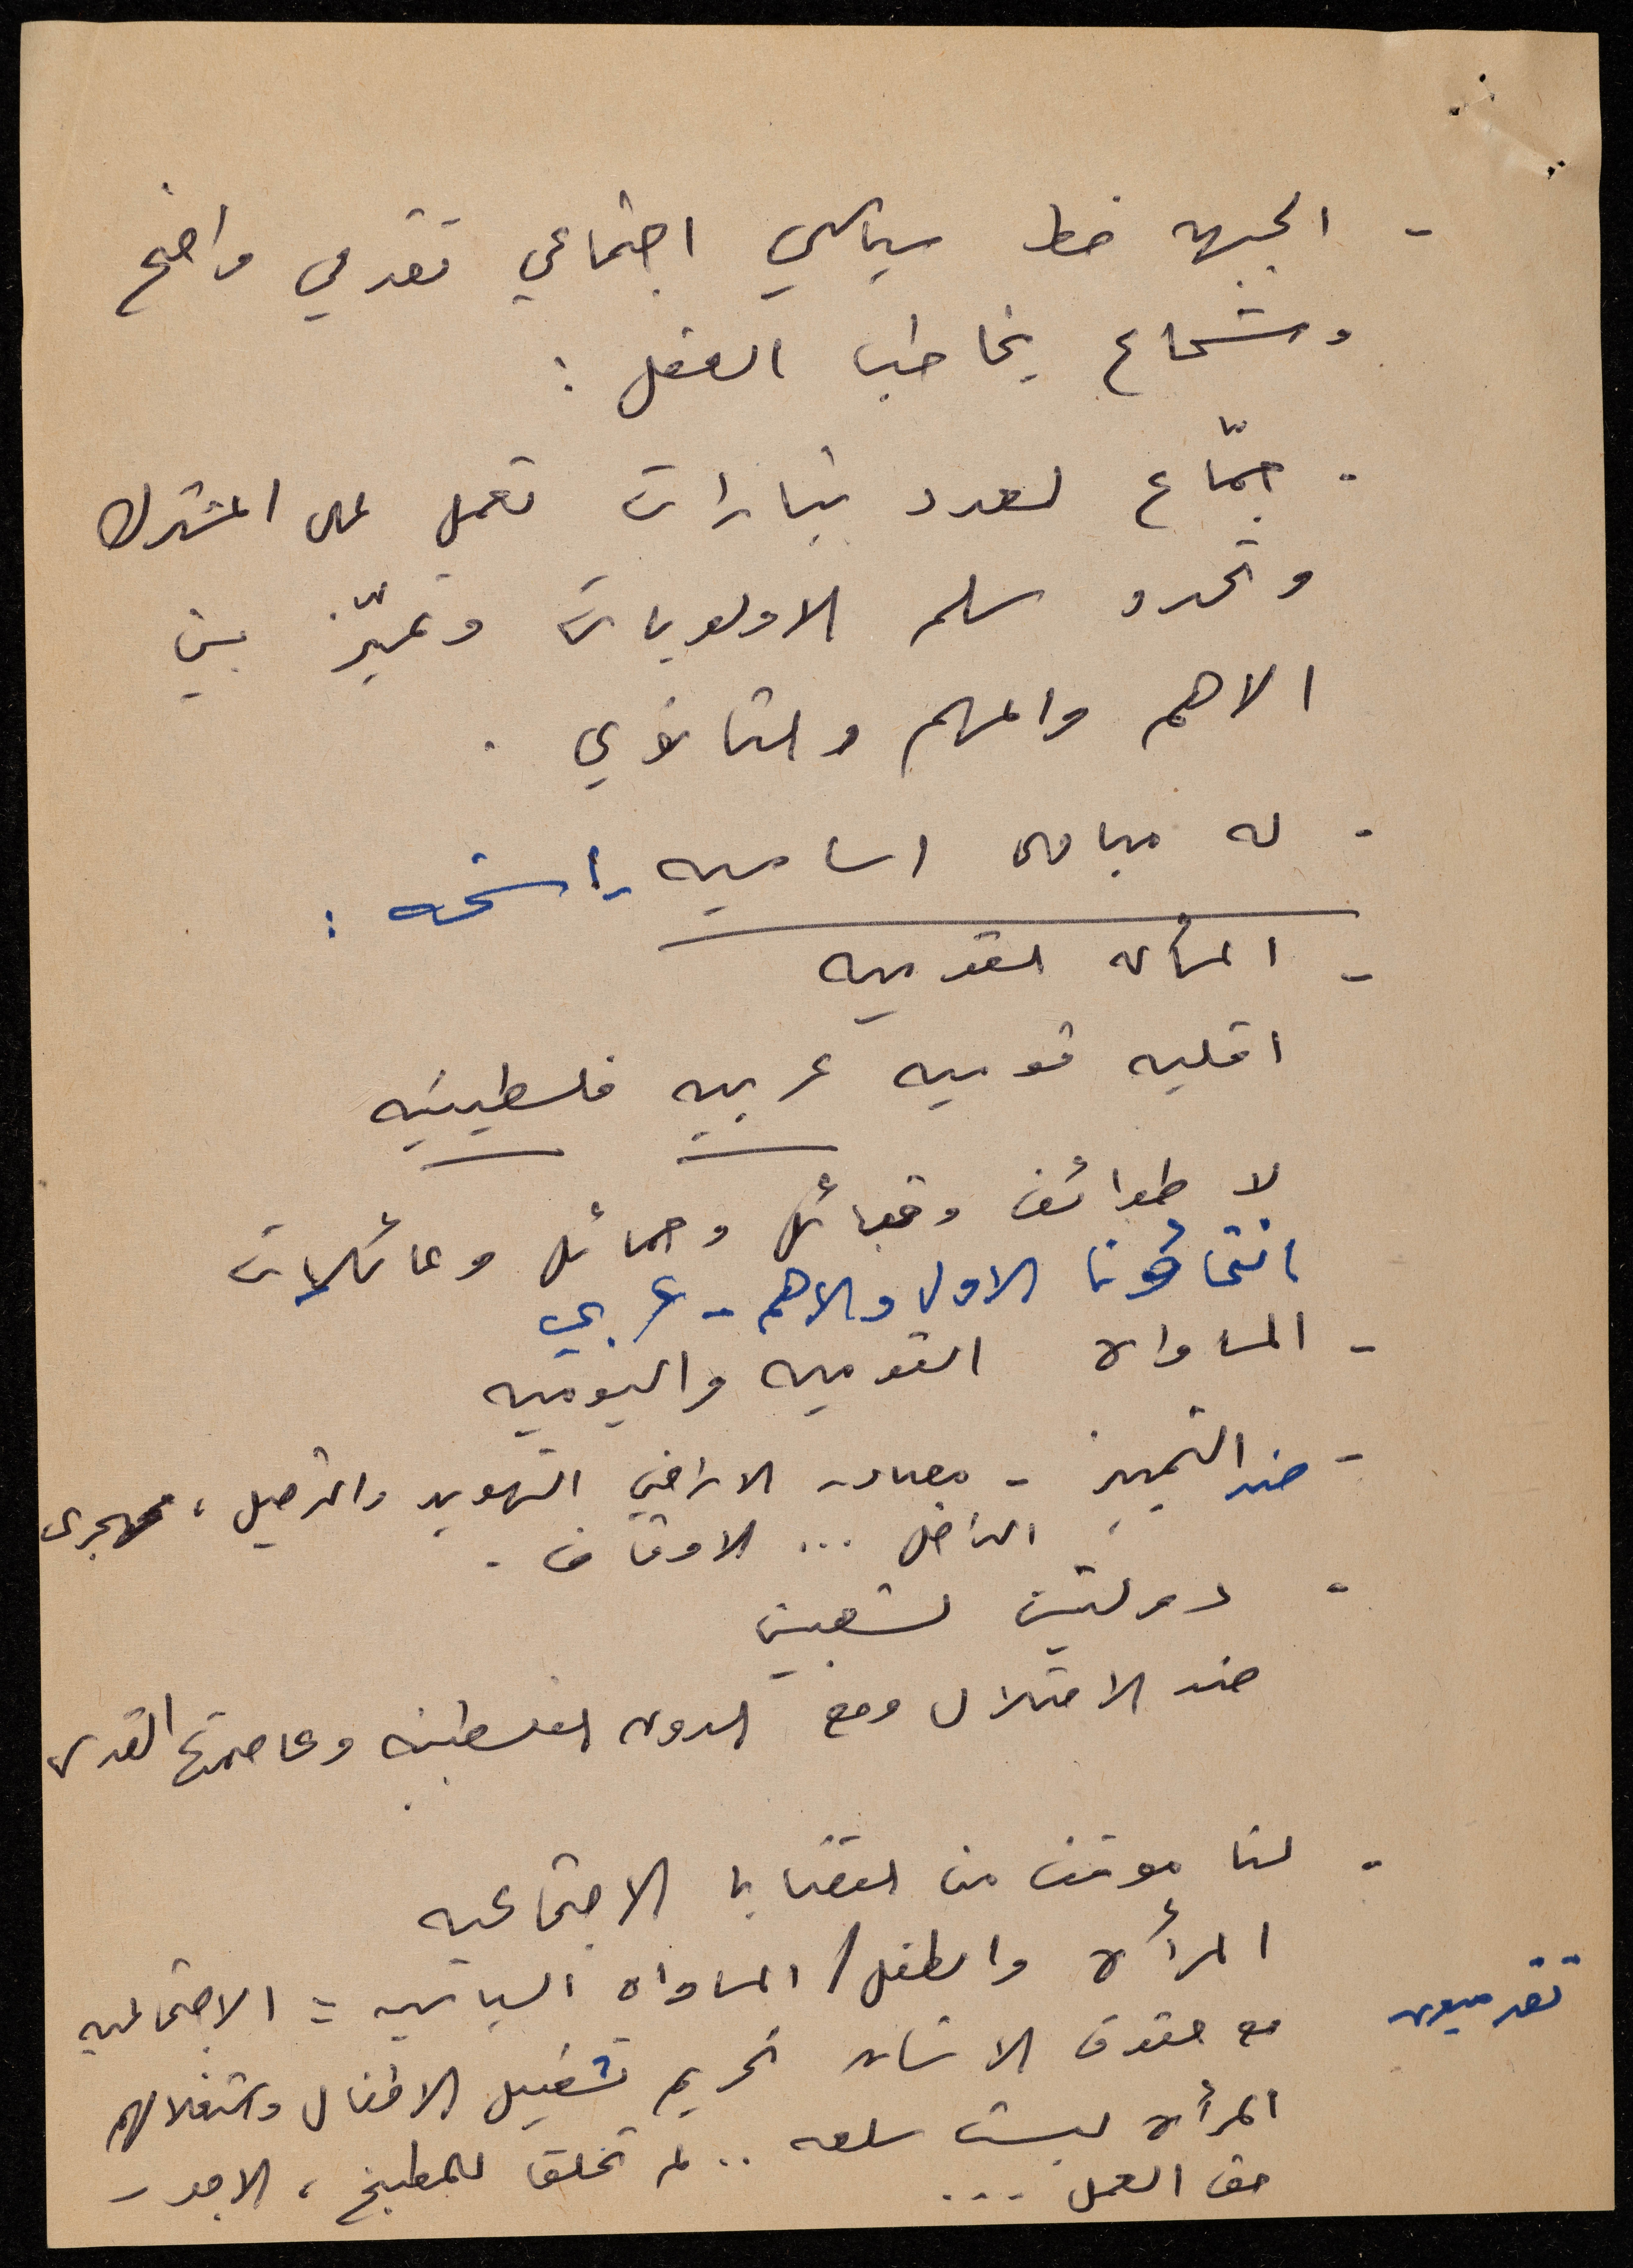 - الجبهه خط سياسي اجتماعي تقدمي واضح
وشجاع يخاطب العقل :
- جمّاع لعدد تيارات تعمل على المشترك
وتحدد سلم الاولويات وتميّز بين
الاهم والمهم والثانوي .
- له مبادئ اساسيه راسخه :
- المسأله القوميه
اقليه قوميه عربيه فلسطينيه
لا طوائف وقبائل وحمائل وعائلات
انتماؤنا الاول والاهم - عربي
- المساواة القوميه واليوميه
- ضد التمييز - مصادره الاراضي التهويد والترحيل ، مهجري
الداخل ... الاوقاف .
- دولتين لشعبين
ضد الاحتلال ومع الدوله الفلسطينيه وعاصمتها القدس
- لنا موقف من القضايا الاجتماعيه
المرأة والطفل / المساواه السياسيه = الاجتماعيه
تقدميون
مع حقوق الانسان تحريم تشغيل الاطفال واستغلالهم
المرأة ليست سلعه .. لم تخلق للمطبخ ، الاجور -
حق العمل ...